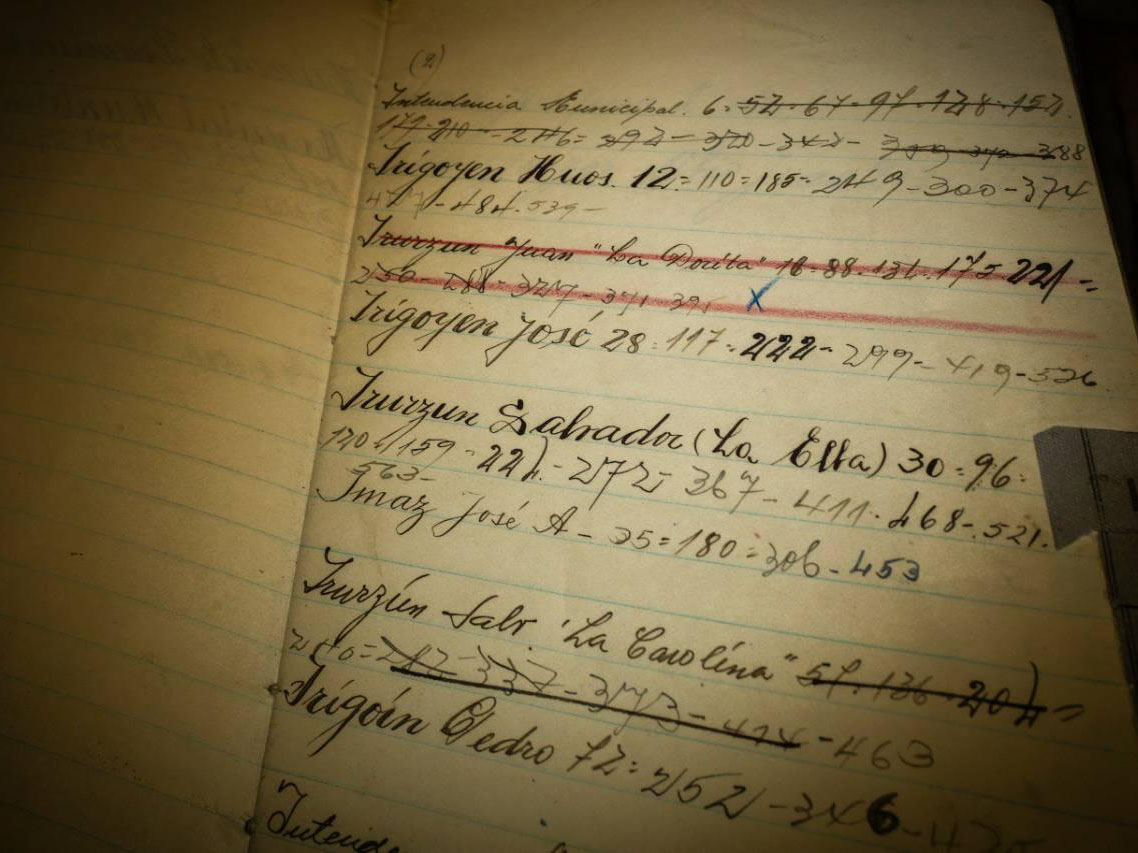 (2)
Intendencia Municipal. 6=52-67-97-128-152
179-210-246=292-320-342-359-372-388
Irigoyen Hnos. 12=110=185=249-300-374
484-539-
Irurzun Juan "La Dorita" 18-88-131-175-221=
250-288-327-371-395 X
Irigoyen José 28=117=222-299-419-526
Irurzun Salvador (La Elba) 30=96=
120-159-221-272-367-411-468-521.
563-
Imaz José A-35=180=306-453
Irurzún Salv "La Carolína"
463
Irigoín Pedro 72=252-346
Intende